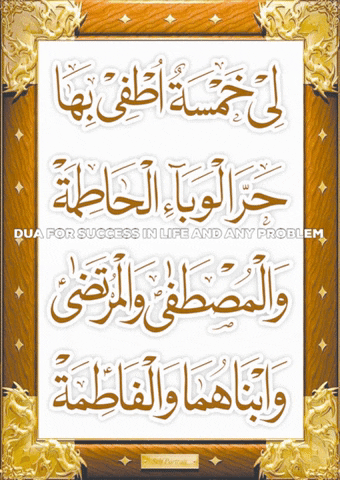 لِیْ خَمْسَةٌ اُطْفِیْ بِهَا
حَرَّ الْوَبَآءِ الْحَاطِمَةْ
DUA FOR SUCCESS IN LIFE AND ANY PROBLEM
وَالْمُصْطَفٰی وَالْمُرْتَضٰی
وَابْنَاهُمَا وَالْفَاطِمَةْ